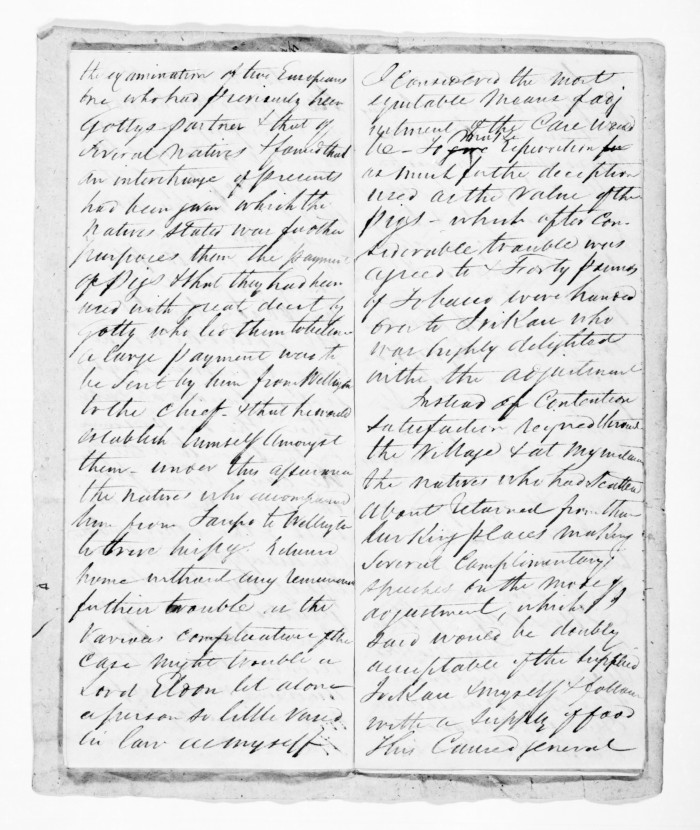 the examination of two Europeans
one who had previously been
Gottys partner & that of
several Natives & found that
an interchange of presents
had been given which the
Natives stated was for other
purposes them the payment
of Pigs & that they had been
used with great deceit by
Gotty who led them to believe
a large payment was to
be sent by him from Wellington
to the Chief - & that he would
establish himself amongst
them - under this assurance
the Natives who accompanied
him from Taupo to Wellington
to drive his pigs. Returned
home without any remuneration
for their trouble. as the
various complications of the
Case might trouble a
Lord Eldon let alone
a person so little versed
in law as myself
I considered the most
equitable means of adj
ustment of the Case would
be - to give Reparation for
as much for the deception
used as the value of the
Pigs - which after Con-
siderable trouble was
agreed to & Forty Pounds
of Tobacco were handed
over to Iwikau who
was highly delighted
withe the adjustment
Instead of Contention
Satisfaction reigned through
the Village & at my
the natives who had Scattered
About returned from their
lurking places making
several Complimentary
speeches on the mode of
adjustment, which I
said would be doubly
acceptable if the supplied
Iwikau & myself &
with a supply of food
this Caused general